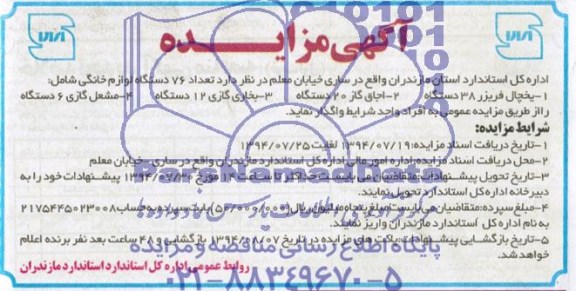 آگهی مزایده
اداره کل استاندارد استان مازندران واقع در ساری خیابان معلم در نظر دارد تعداد ۷۶ دستگاه لوازم خانگی شامل:
۱-یخچال فریزر ۳۸ دستگاه ۲-اجاق گاز ۲۰ دستگاه ۳-بخاری گازی ۱۲ دستگاه ۴-مشعل گازی ۶ دستگاه
را از طریق مزایده عمومی به افراد واجد شرایط واگذار نماید.
شرایط مزایده:
۱-تاریخ دریافت اسناد مزایده: ۱۳۹۴/۰۷/۱۹ لغایت ۱۳۹۴/۰۷/۲۵
۲-محل دریافت اسناد مزایده: اداره امور مالی اداره کل استاندارد مازندران واقع در ساری-خیابان معلم
۳-تاریخ تحویل پیشنهادات: متقاضیان می بایست حداکثر تا ساعت ۱۴ مورخ پیشنهادات خود را به
دبیرخانه اداره کل استاندارد تحویل نمایند.
۴-مبلغ سپرده: متقاضیان می بایست مبلغ پنجاه میلیون ریال بابت سپرده به حساب ۲۱۷۵۴۴۵۰۲۳۰۰۸
به نام اداره کل استاندارد مازندران واریز نمایند.
۵-تاریخ بازگشایی پیشنهادات: پاکت های مزایده در تاریخ ۱۳۹۴/۰۸/۰۷ بازگشایی و ۴۸ ساعت بعد نفر برنده اعلام
خواهد شد.
روابط عمومی اداره کل استاندارد استاندارد مازندران
پایگاه اطلاع رسانی مناقصه و مزایده
۰۲۱-۸۸۳۴۹۶۷۰-۵